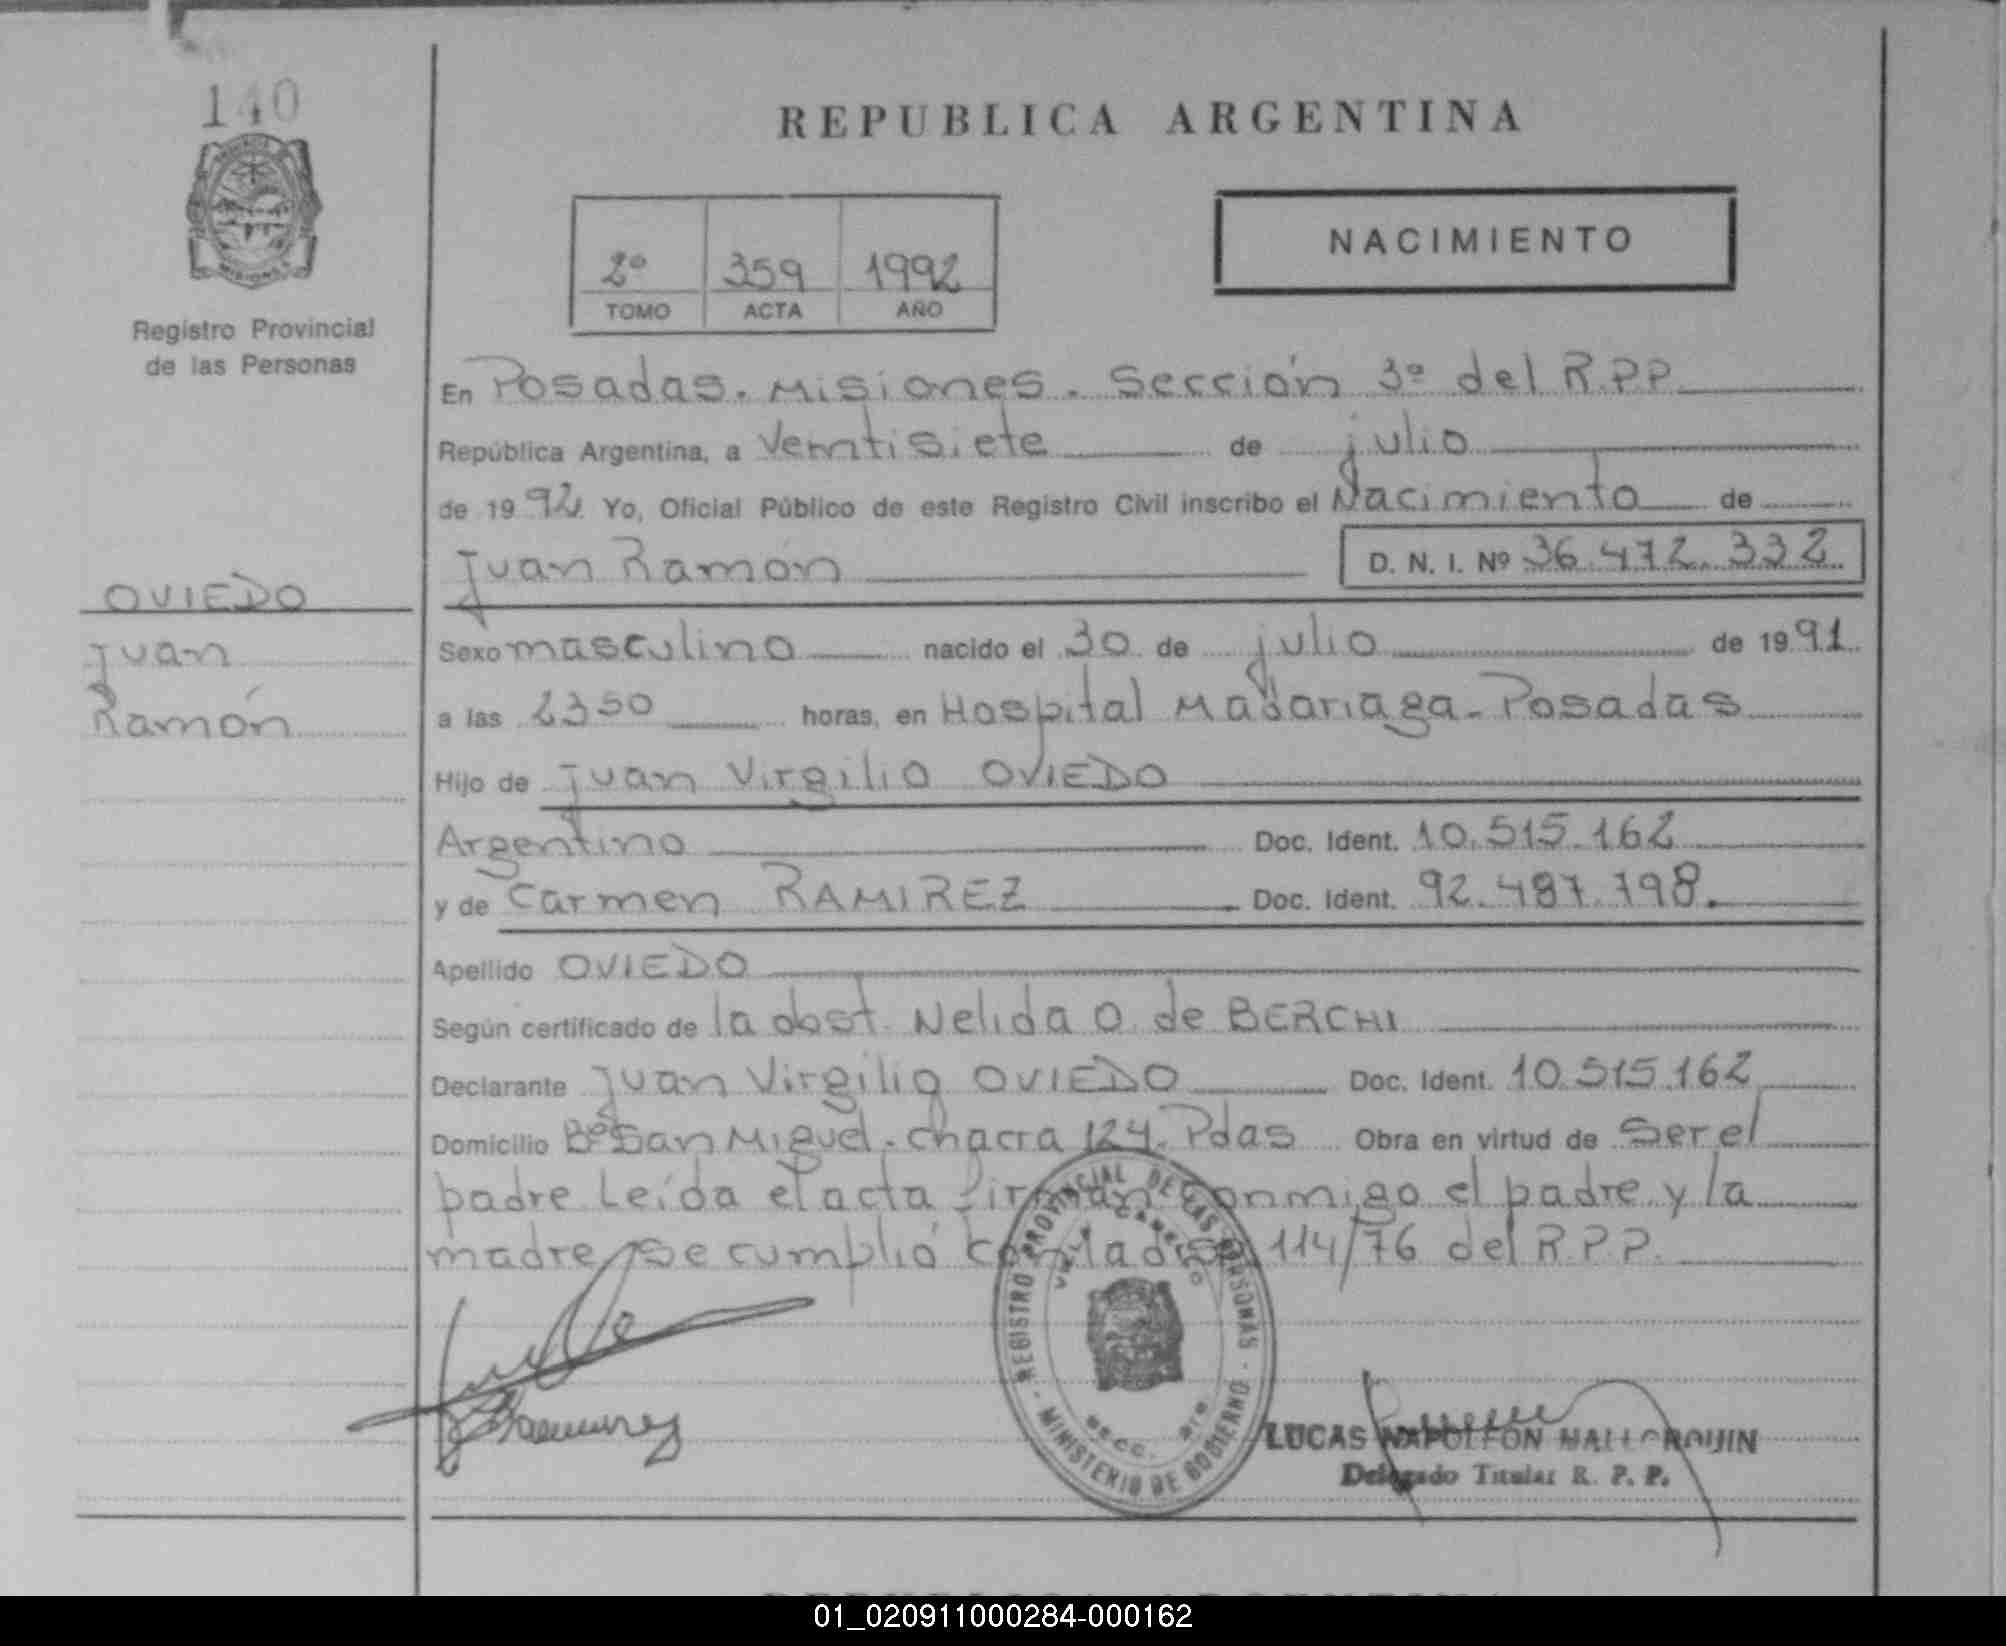 140
REPUBLICA ARGENTINA
NACIMIENTO
2º 359 1992
TOMO ACTA AÑO
Registro Provincial
de las Personas
En Posadas. Misiones. Sección 3º del R.P.P.
República Argentina, a Veintisiete de julio
de 1992 Yo, Oficial Público de este Registro Civil inscribo el Nacimiento de
Juan Ramón D. N. I. Nº 36.472.332
OVIEDO
Juan
Ramón
Sexo masculino nacido el 30 de julio de 1991
a las 2350 horas, en Hospital Madariaga - Posadas
Hijo de Juan Virgilio OVIEDO
Argentino Doc. Ident. 10.515.162
y de Carmen RAMIREZ Doc. Ident. 92.487.798.
Apellido OVIEDO
Según certificado de la obst. Nelida O. de BERCHI
Declarante Juan Virgilio OVIEDO Doc. Ident. 10.515.162
Domicilio Bº San Miguel - chacra 124. Pdas Obra en virtud de Ser el
padre Leída el acta firman conmigo el padre y la
madre, se cumplió con la 114/76 del R.P.P.
REGISTRO PROVINCIAL DE LAS PERSONAS - MINISTERIO DE GOBIERNO -
LUCAS NAPOLEON MALLORQUIN
Delegado Titular R. P. P.
01_020911000284-000162